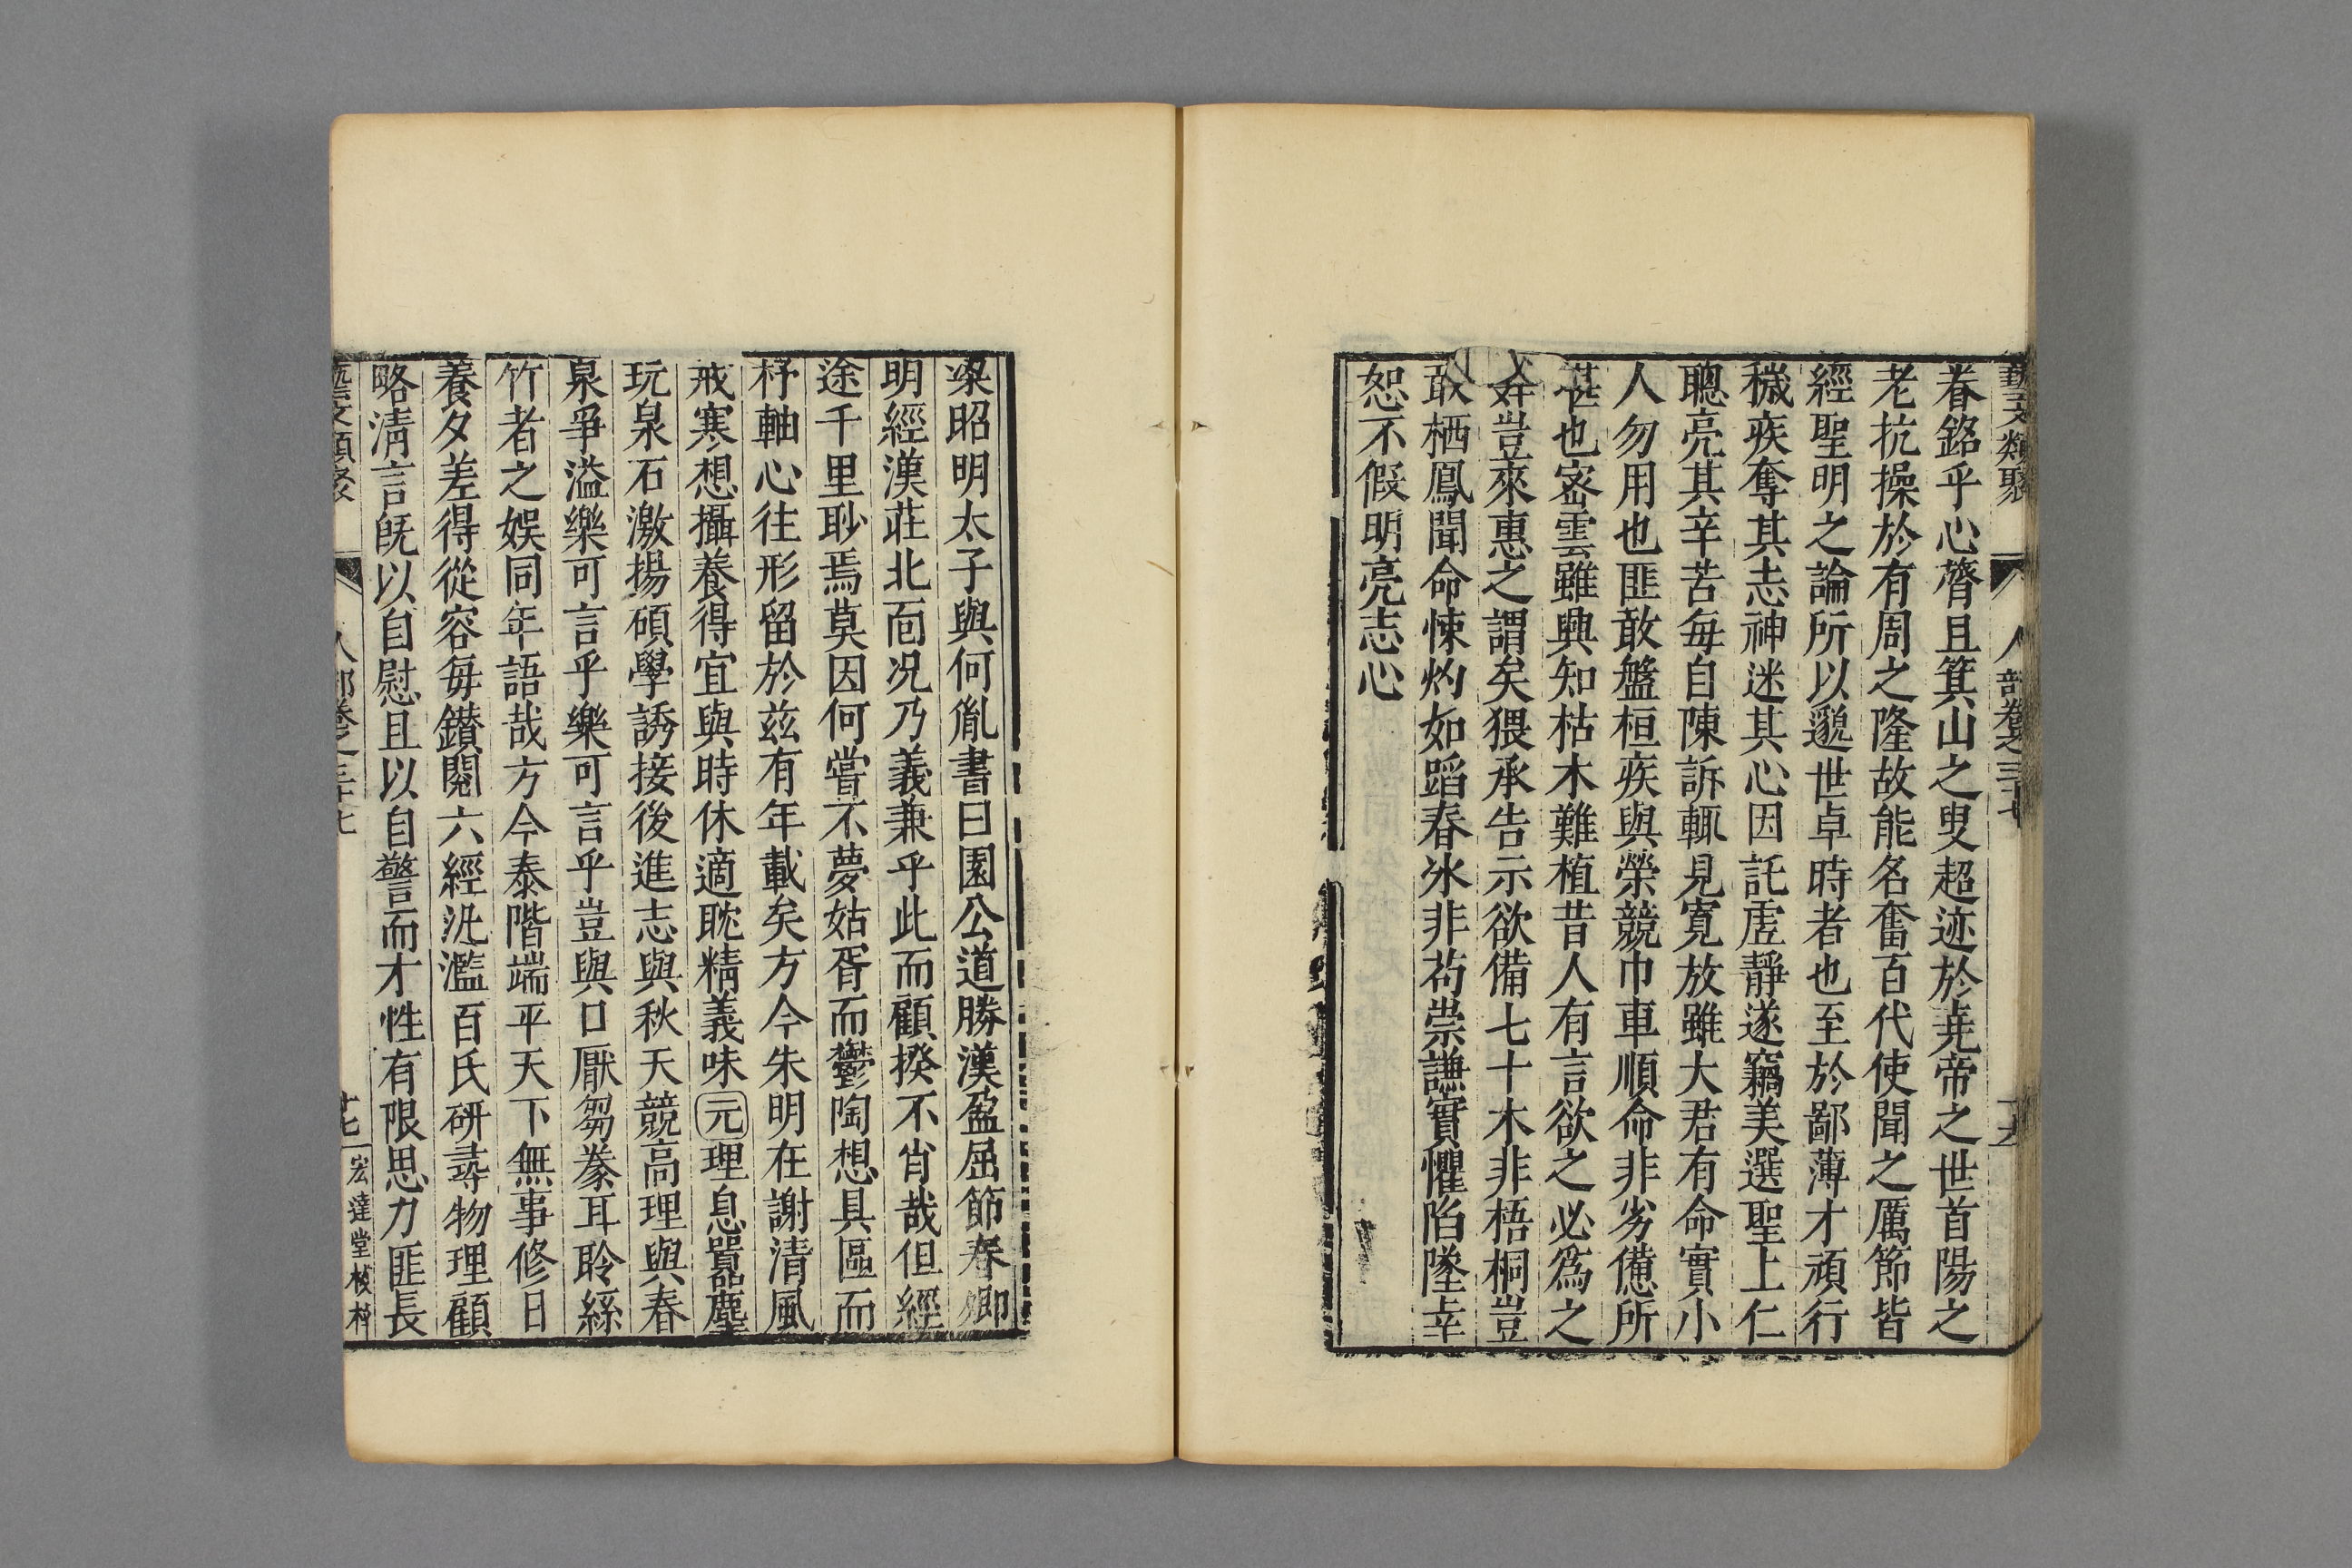 藝文類聚 人部卷之三十七
眷銘乎心膂且箕山之叟超迹於堯帝之世首陽之
老抗操於有周之隆故能名奮百代使聞之厲節皆
經聖明之論所以邈世卓時者也至於鄙薄才頑行
穢疾奪其志神迷其心因託虛靜遂竊美選聖上仁
聰亮其辛苦每自陳訴輒見寬放雖大君有命實小
人勿用也匪敢盤桓疾與榮競巾車順命非劣憊所
堪也密雲雖興知枯木難植昔人有言欲之必爲之
辞豈來惠之謂矣猥承告示欲備七十木非梧桐豈
敢栖鳳聞命悚灼如蹈春氷非苟崇謙實懼陷墜幸
恕不假明亮志心
梁昭明太子與何胤書曰園公道勝漢盈屈節春卿
明經漢莊北面况乃義兼乎此而顧揆不肖哉但經
途千里眇焉莫因何嘗不夢姑胥而鬱陶想具區而
杼軸心往形留於茲有年載矣方今朱明在謝清風
戒寒想攝養得宜與時休適耽精義味元理息囂塵
玩泉石激揚碩學誘接後進志與秋天競高理與春
泉爭溢樂可言乎樂可言乎豈與口厭芻豢耳聆絲
竹者之娛同年語哉方今泰階端平天下無事修日
養夕差得從容每鑚閱六經汎濫百氏研尋物理顧
略淸言旣以自慰且以自警而才性有限思力匪長
藝文類聚 人部卷之三十七 廿七 宏達堂校梓